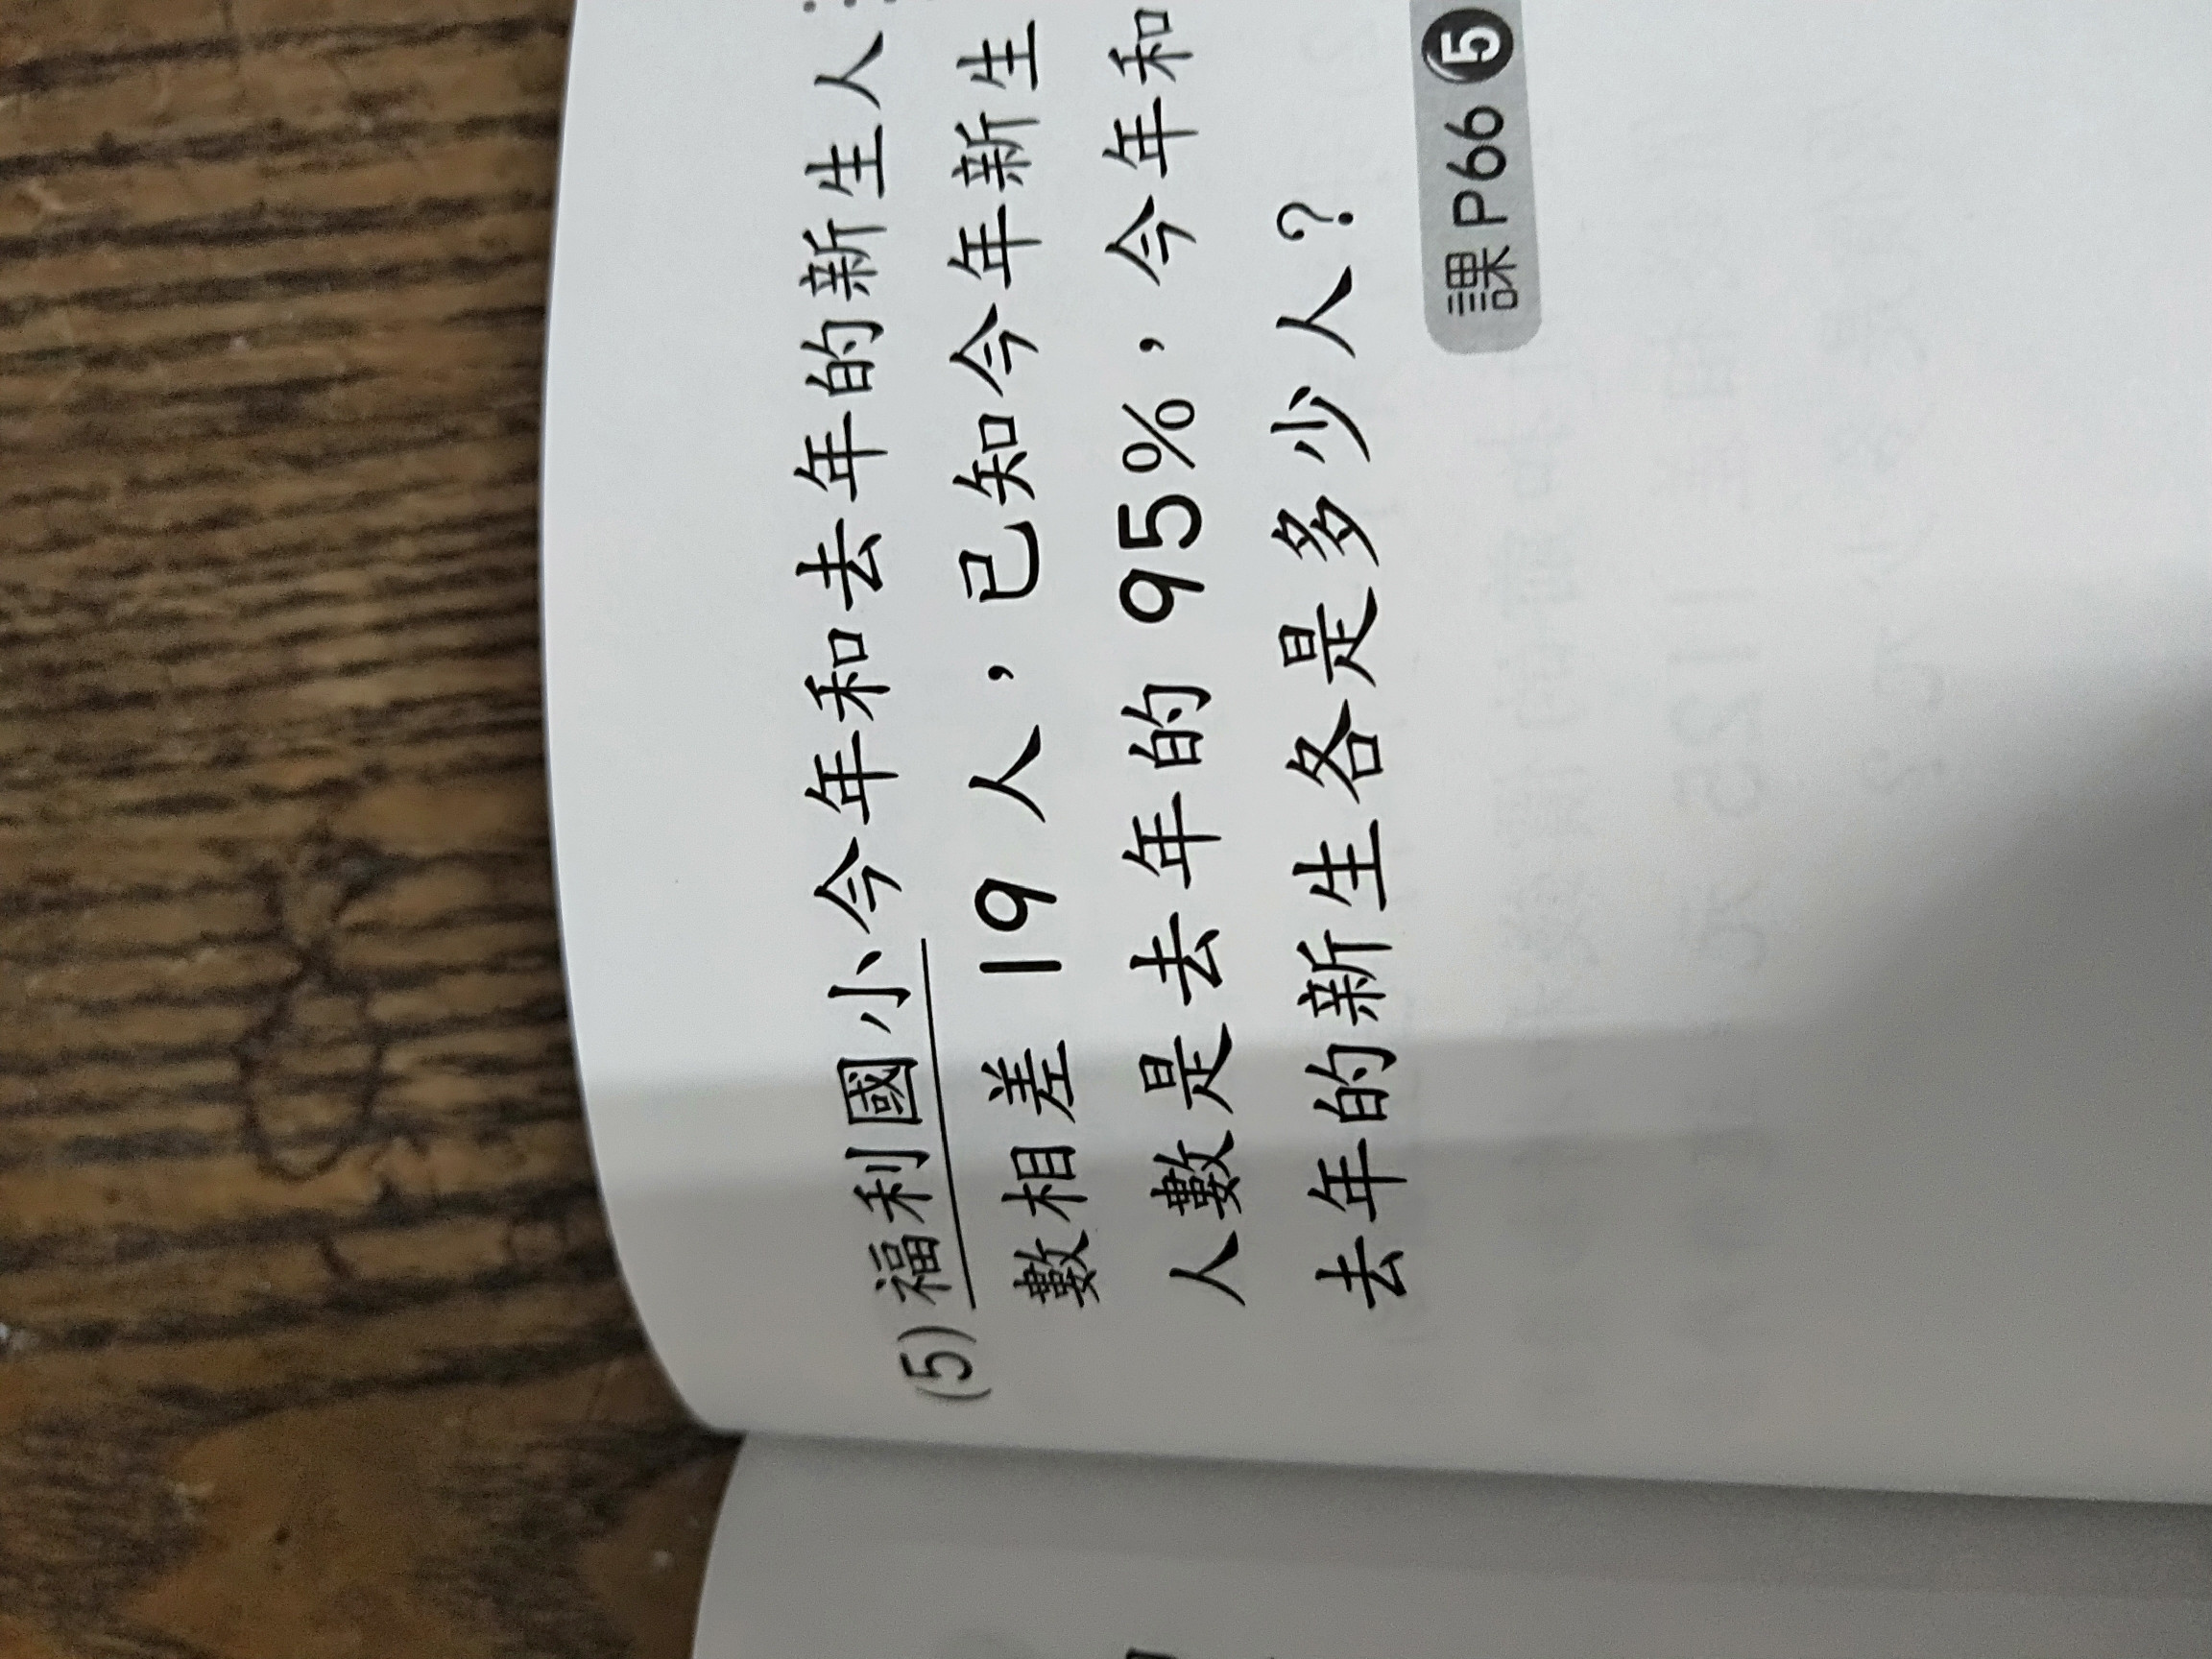 (5)福利國小今年和去年的新生人
數相差 19 人，已知今年新生
人數是去年的 95%，今年和
去年的新生各是多少人？
課P66 5